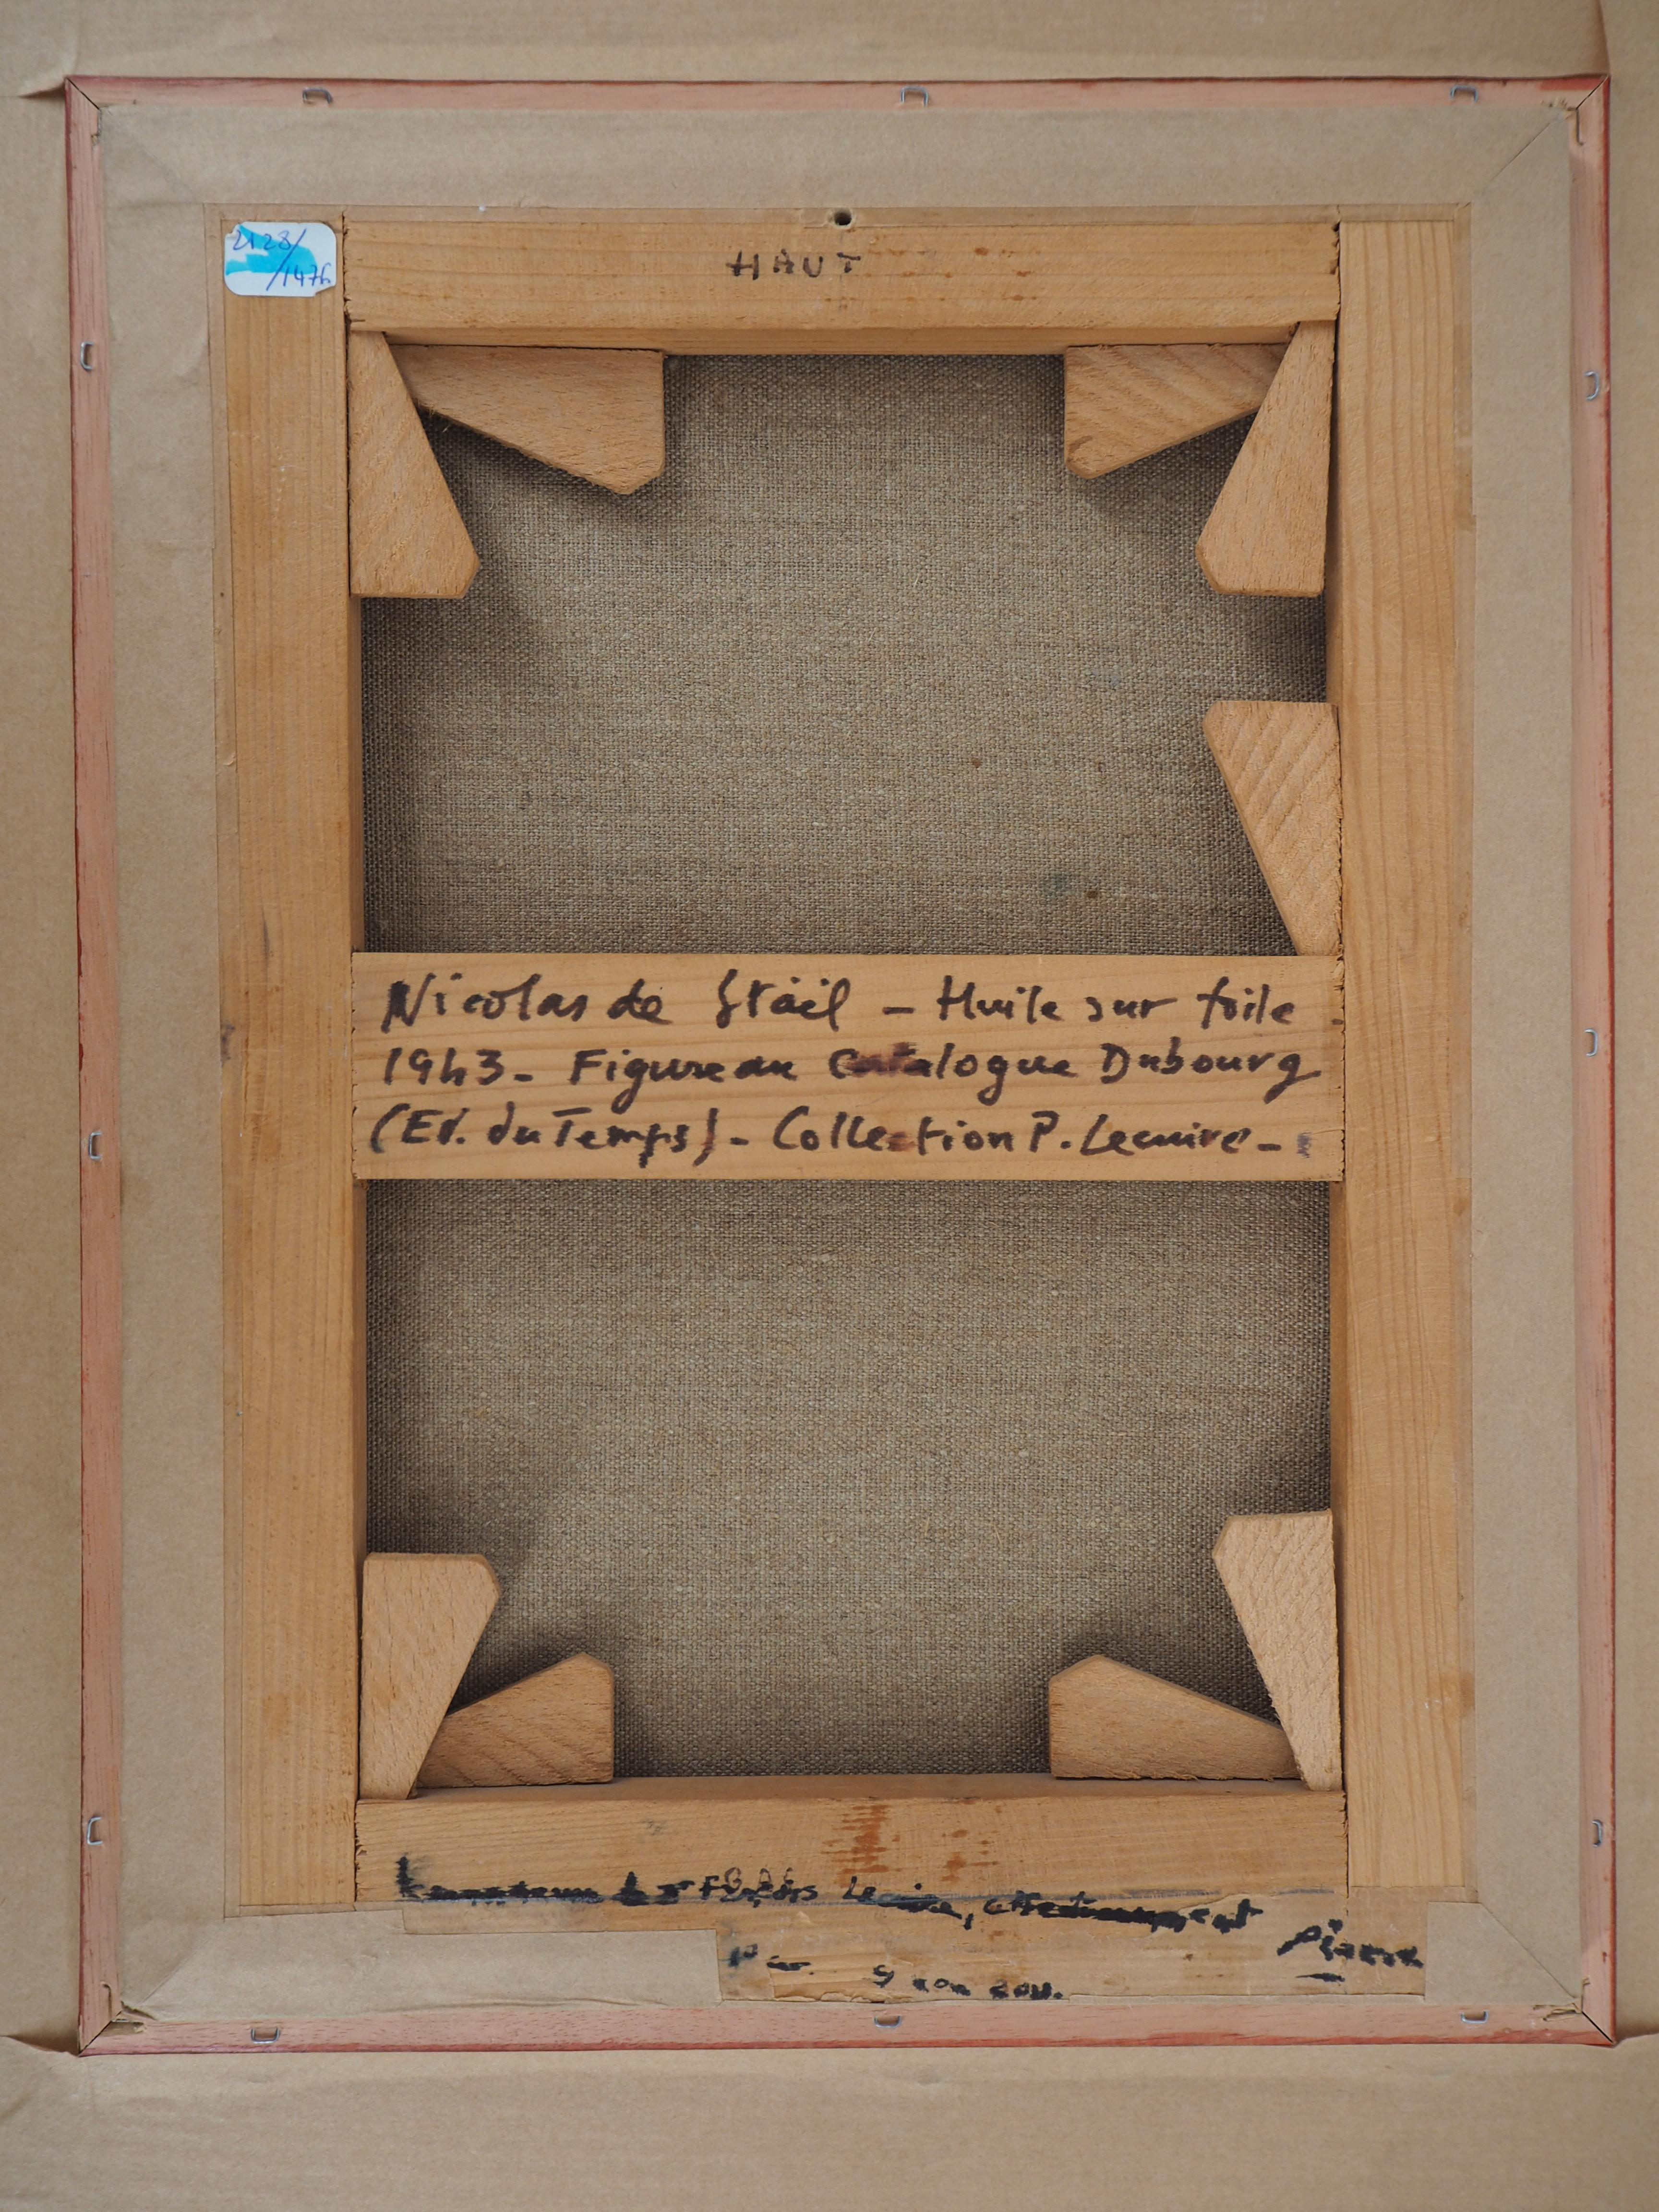 2128/
/1476
HAUT
Nicolas de Staël – Huile sur toile –
1943 – Figure au Catalogue Dubourg
(Ed. du Temps) – Collection P. Lecuire –
Lecuire, affectueusement
Pierre
9 2011.